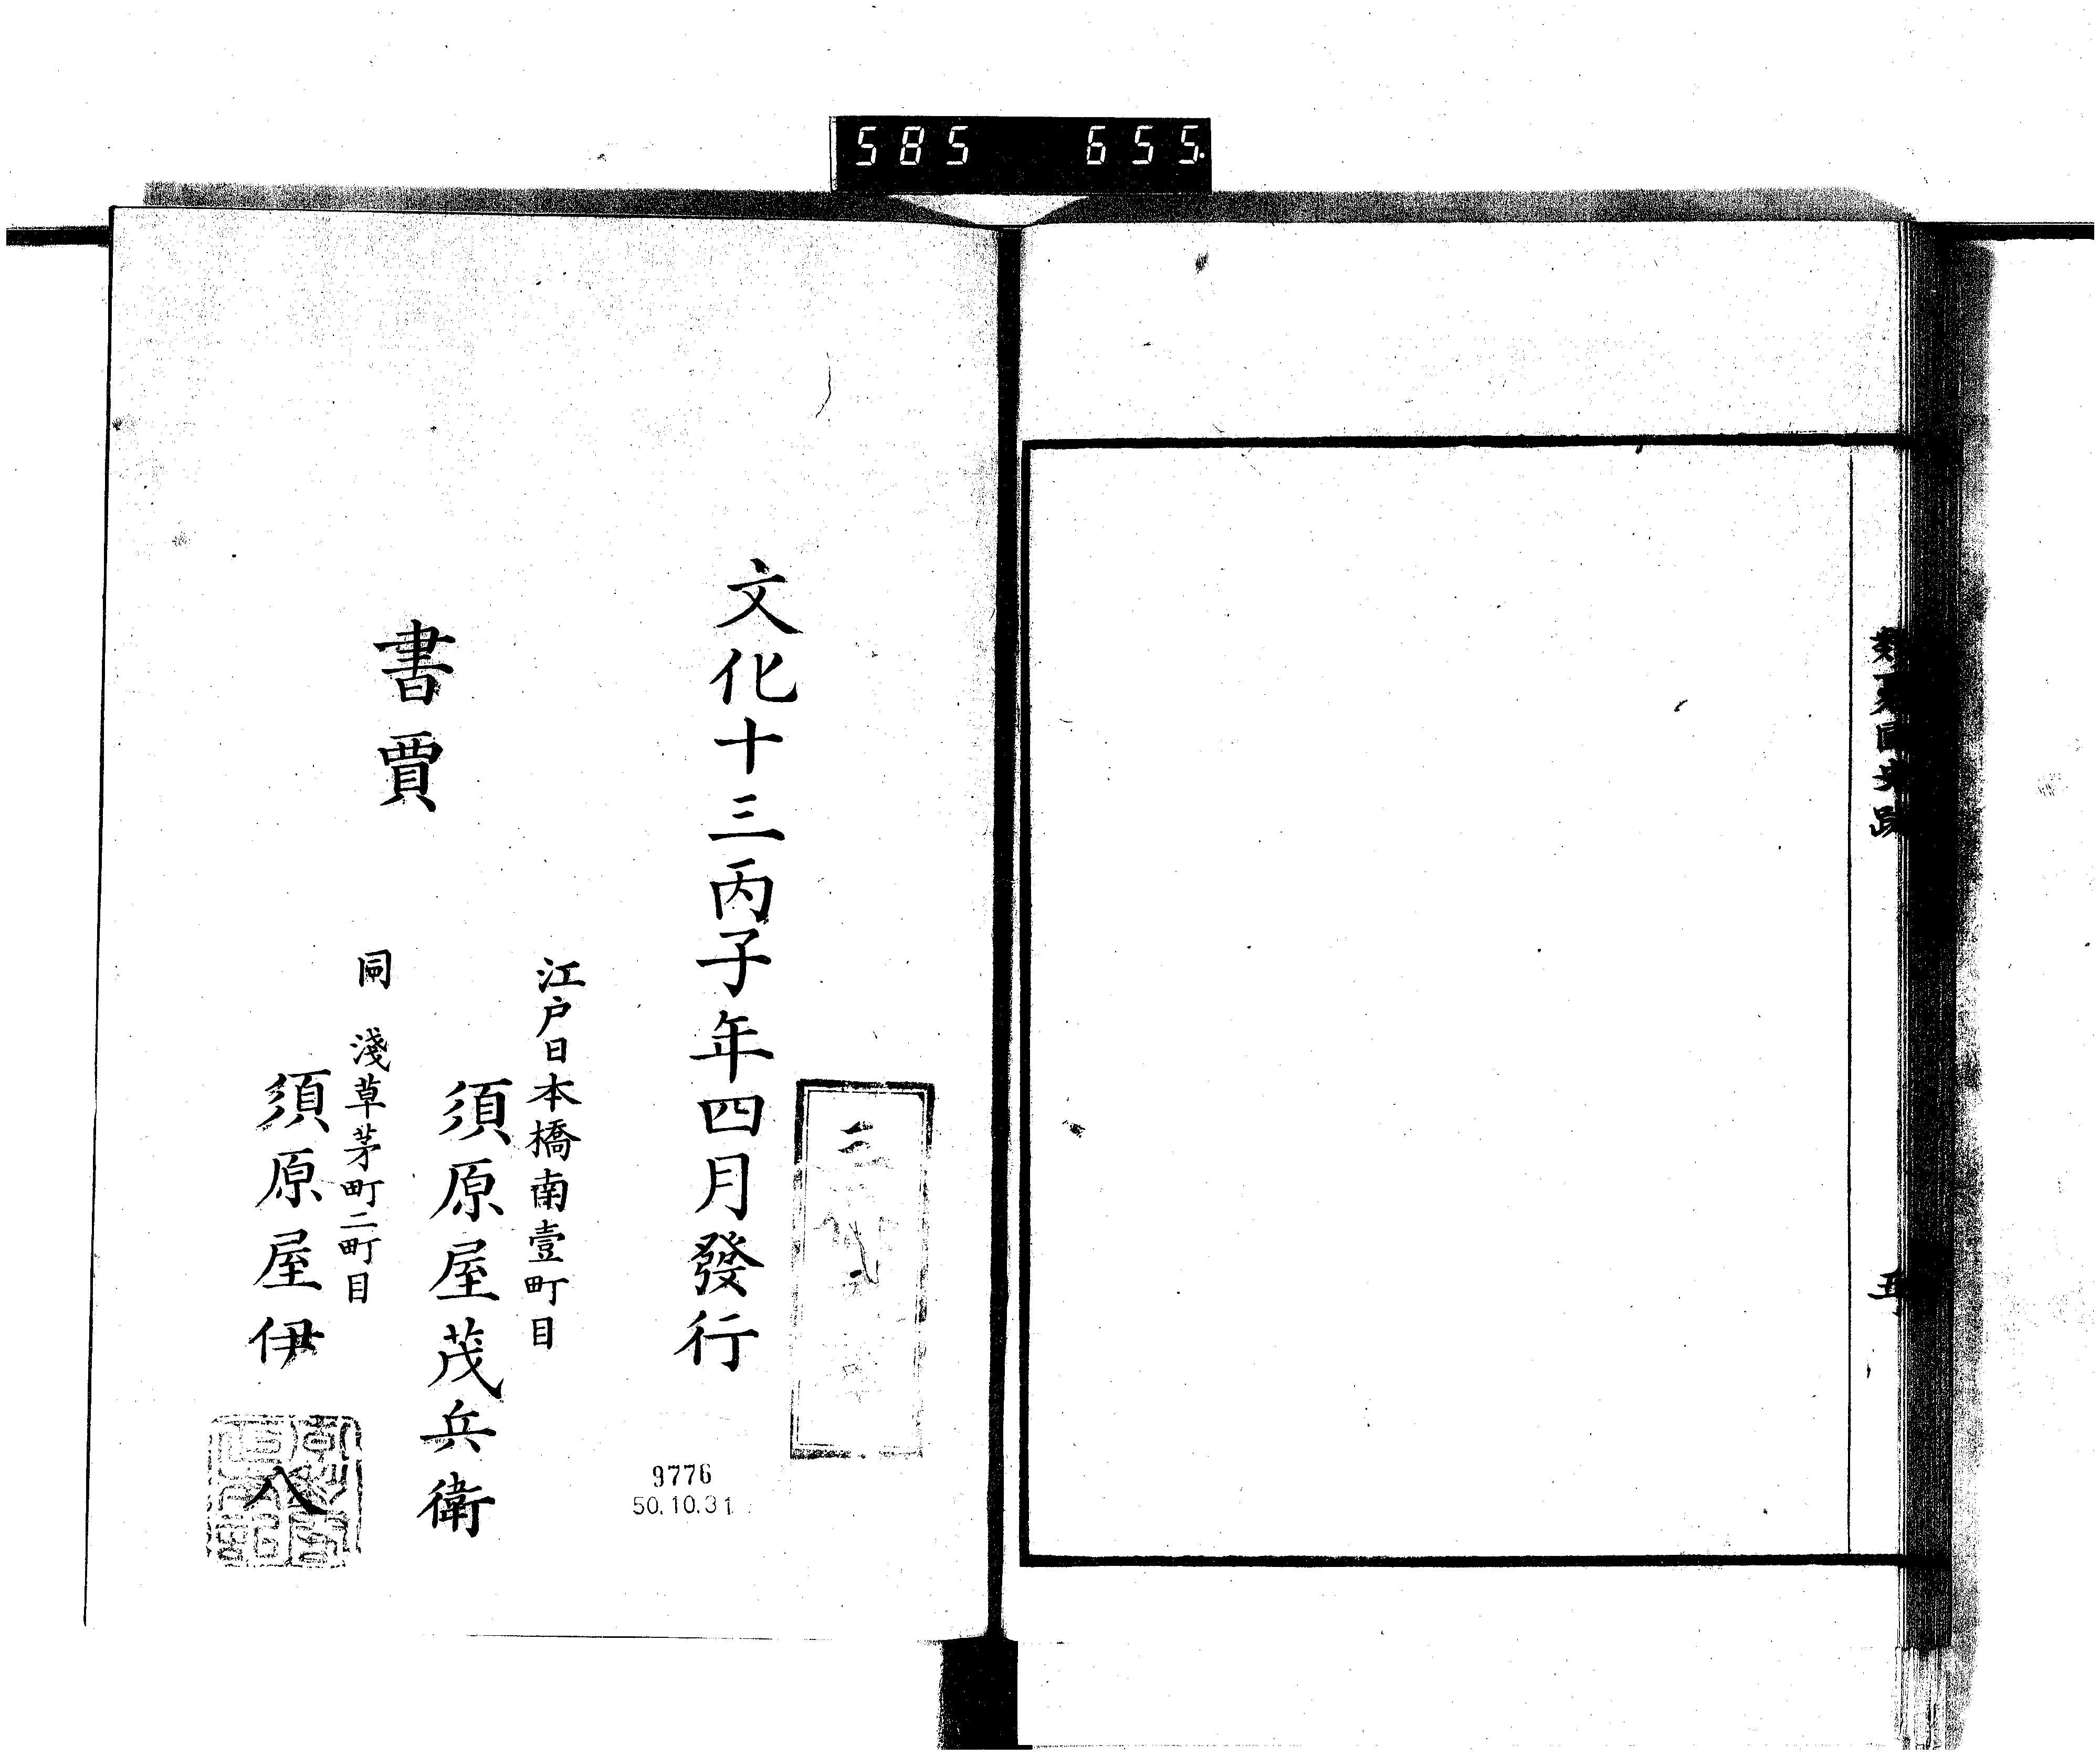 585 655
類聚國史跋
五
文化十三丙子年四月發行
江戸日本橋南壹町目
須原屋茂兵衛
書賈
同 淺草茅町二町目
須原屋伊八
9776
50.10.31